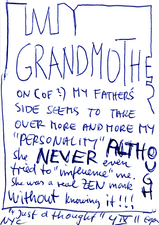 MY
GRANDMOTHER
ON (OF?) MY FATHERS'
SIDE SEEMS TO TAKE
OVER MORE AND MORE MY
"PERSONALITY" ALTHOUGH
She NEVER even
tried to "influence" me.
She was a real ZEN monk
without knowing it!!!
"Just a thought"
NYC